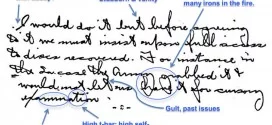 many irons in the fire.
I would do it but before
it we must insist upon full access
to discs recovered. For instance in
the case the Army grabbed it &
would not let us have it for cursory
examination
Guilt, past issues
High t-bar: high self-